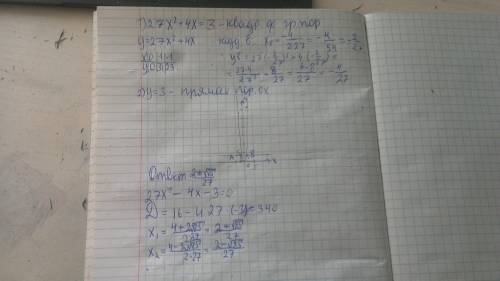 1) 27x²+4x=3 - квадр. ф гр. пар
y=27x²+4x коорд. в. x₀ = -4/2·27 = -4/54 = -2/27
x 0 1 -1
y 0 31 23
= 27·4/27² - 8/27 = 4-8/27 = -4/27
2) y=3 - прямая пар. ox
Ответ 2±√85/27
27x² - 4x-3=0
D = 16-4·27·(-3)=340
x₁ = 4+2√85/2·27 = 2+√85/27
x₂ = 4-2√85/2·27 = 2-√85/27